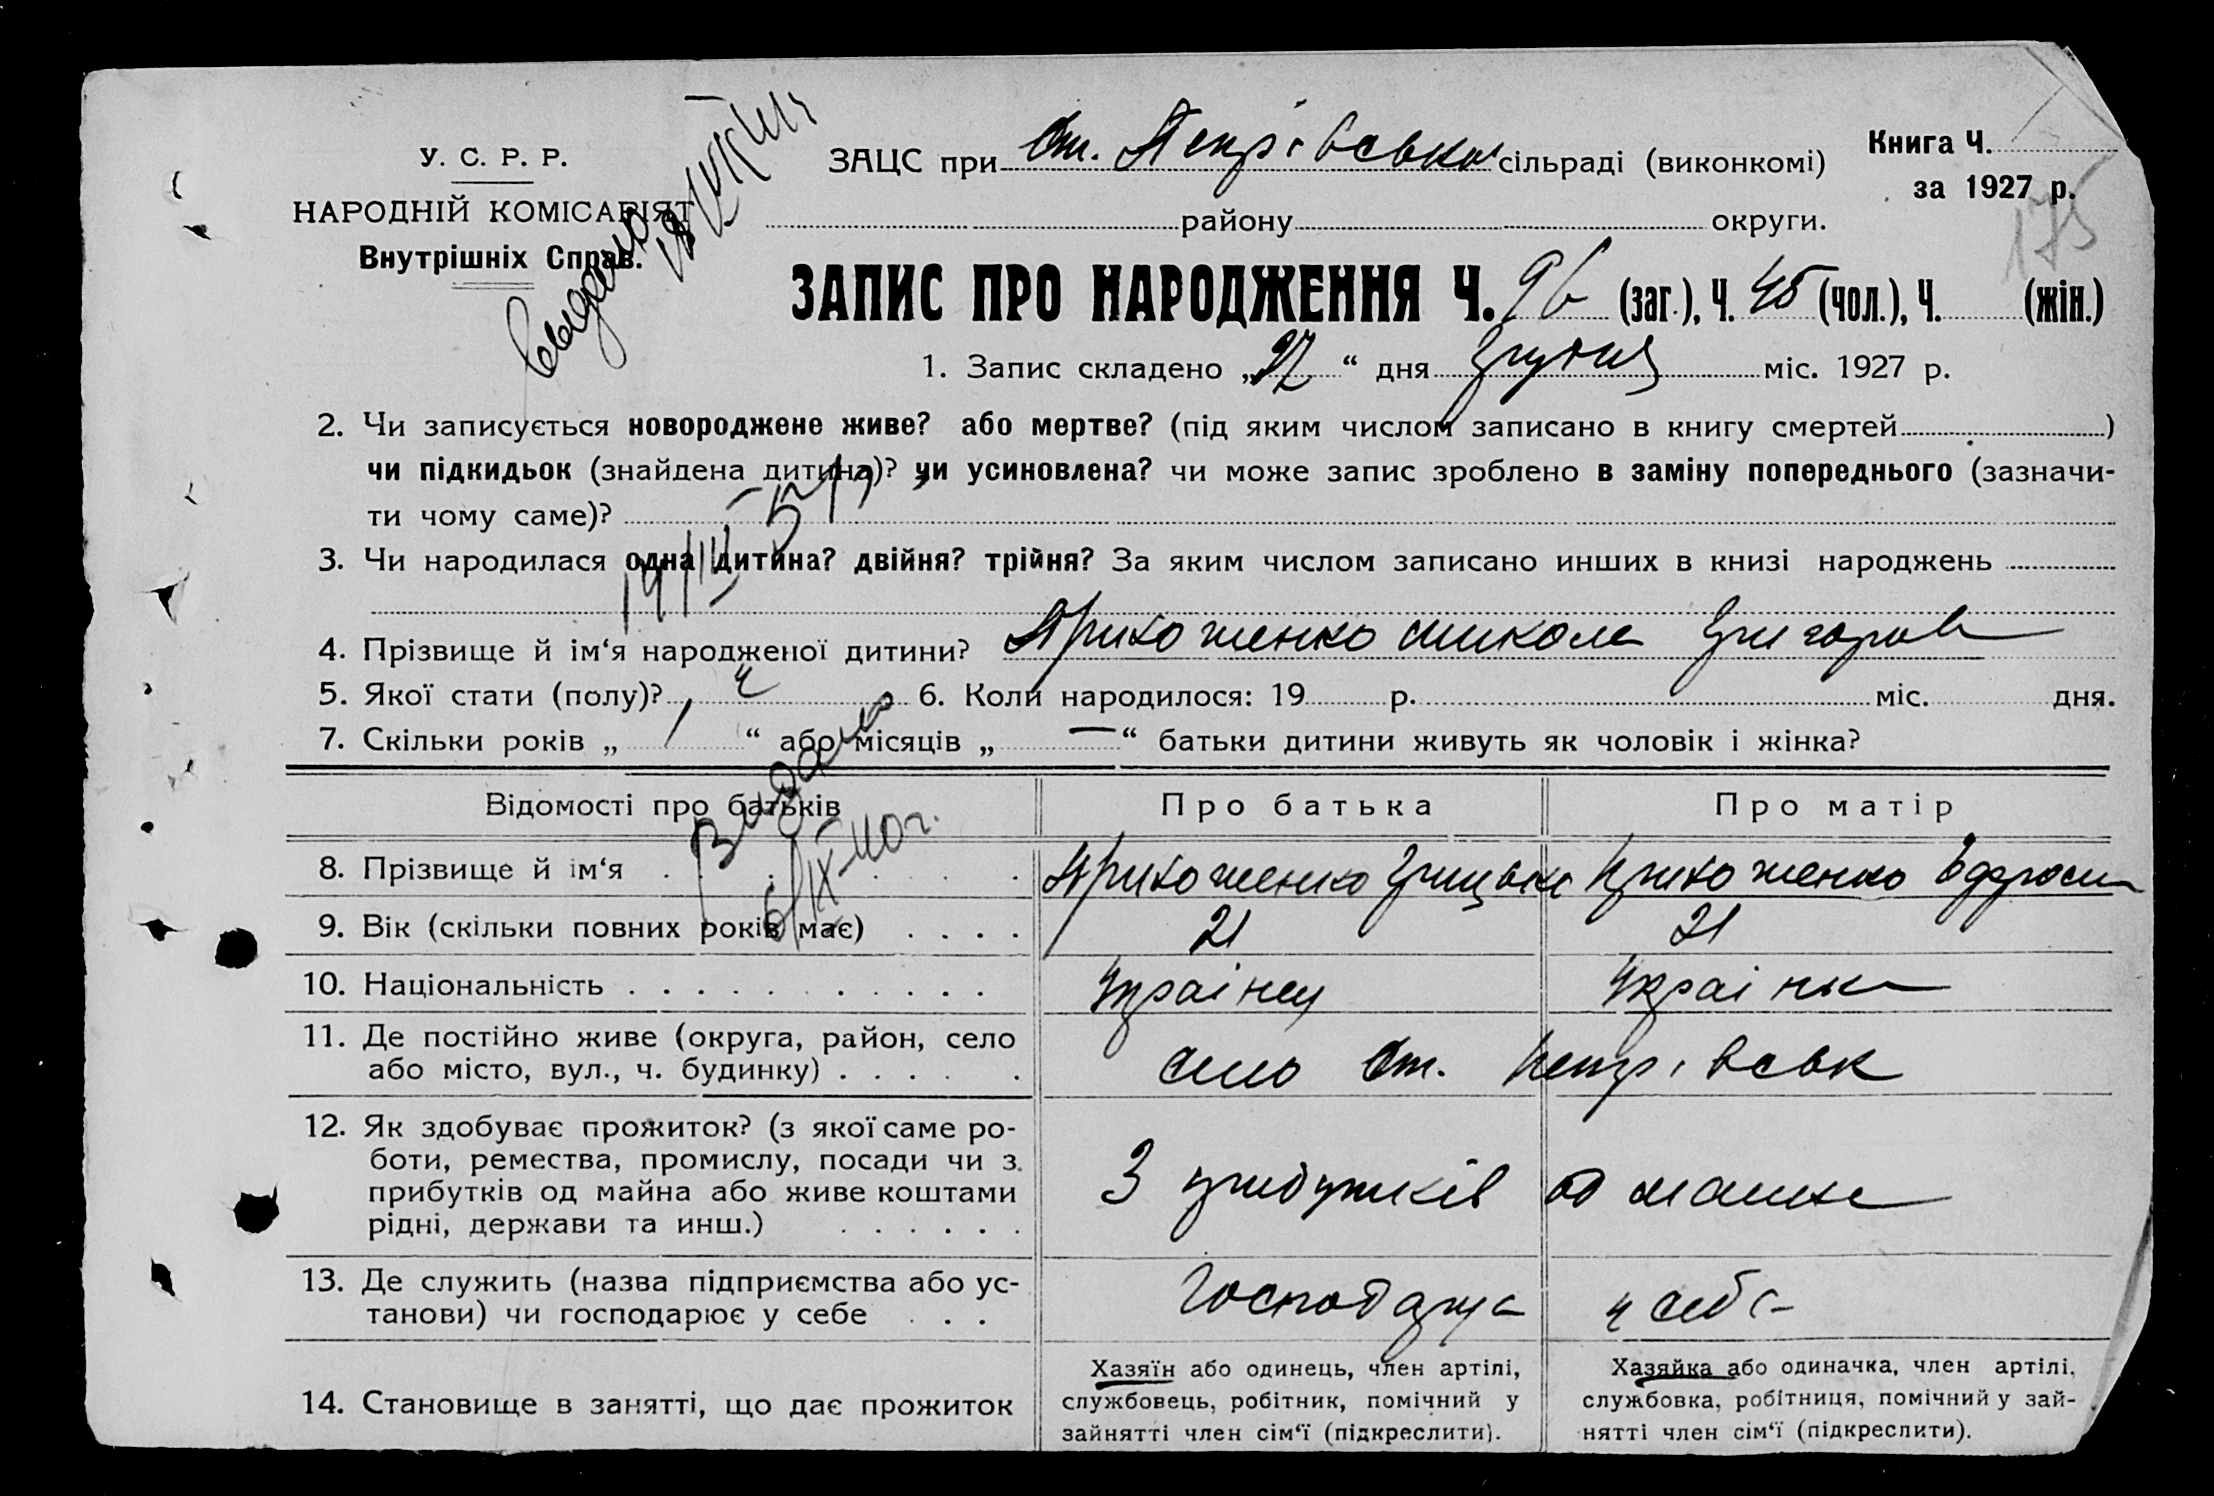 У. С. Р. Р.
НАРОДНІЙ КОМІСАРІЯТ
Внутрішніх Справ.
видано
ЗАЦС при Ст. Петрівській сільраді (виконкомі)
району округи.
Книга Ч.
за 1927 р.
175
ЗАПИС ПРО НАРОДЖЕННЯ Ч. 96 (заг.), Ч. 45 (чол.), Ч. (жін.)
1. Запис складено „27“ дня грудня міс. 1927 р.
2. Чи записується новороджене живе? або мертве? (під яким числом записано в книгу смертей )
чи підкидьок (знайдена дитина)? чи усиновлена? чи може запис зроблено в заміну попереднього (зазначи-
ти чому саме)?
3. Чи народилася одна дитина? двійня? трійня? За яким числом записано инших в книзі народжень
4. Прізвище й ім‘я народженої дитини? Прихоженко Микола Григоров
5. Якої стати (полу)? ч 6. Коли народилося: 19 р. міс. дня.
7. Скільки років „ 1 “ або місяців „ — “ батьки дитини живуть як чоловік і жінка?
Видано
6/IX-40 г.
Відомості про батьків Про батька Про матір
8. Прізвище й ім‘я Прихоженко Грицько Прихоженко Єфросин
9. Вік (скільки повних років має) 21 21
10. Національність Українец Українка
11. Де постійно живе (округа, район, село
або місто, вул., ч. будинку) село Ст. Петрівськ
12. Як здобуває прожиток? (з якої саме ро-
боти, ремества, промислу, посади чи з
прибутків од майна або живе коштами
рідні, держави та инш.) З прибутків од майна
13. Де служить (назва підприємства або ус-
танови) чи господарює у себе Господарує у себе
14. Становище в занятті, що дає прожиток
Хазяїн або одинець, член артілі,
службовець, робітник, помічний у
зайнятті член сім‘ї (підкреслити).
Хазяйка або одиначка, член артілі,
службовка, робітниця, помічний у зай-
нятті член сім‘ї (підкреслити).